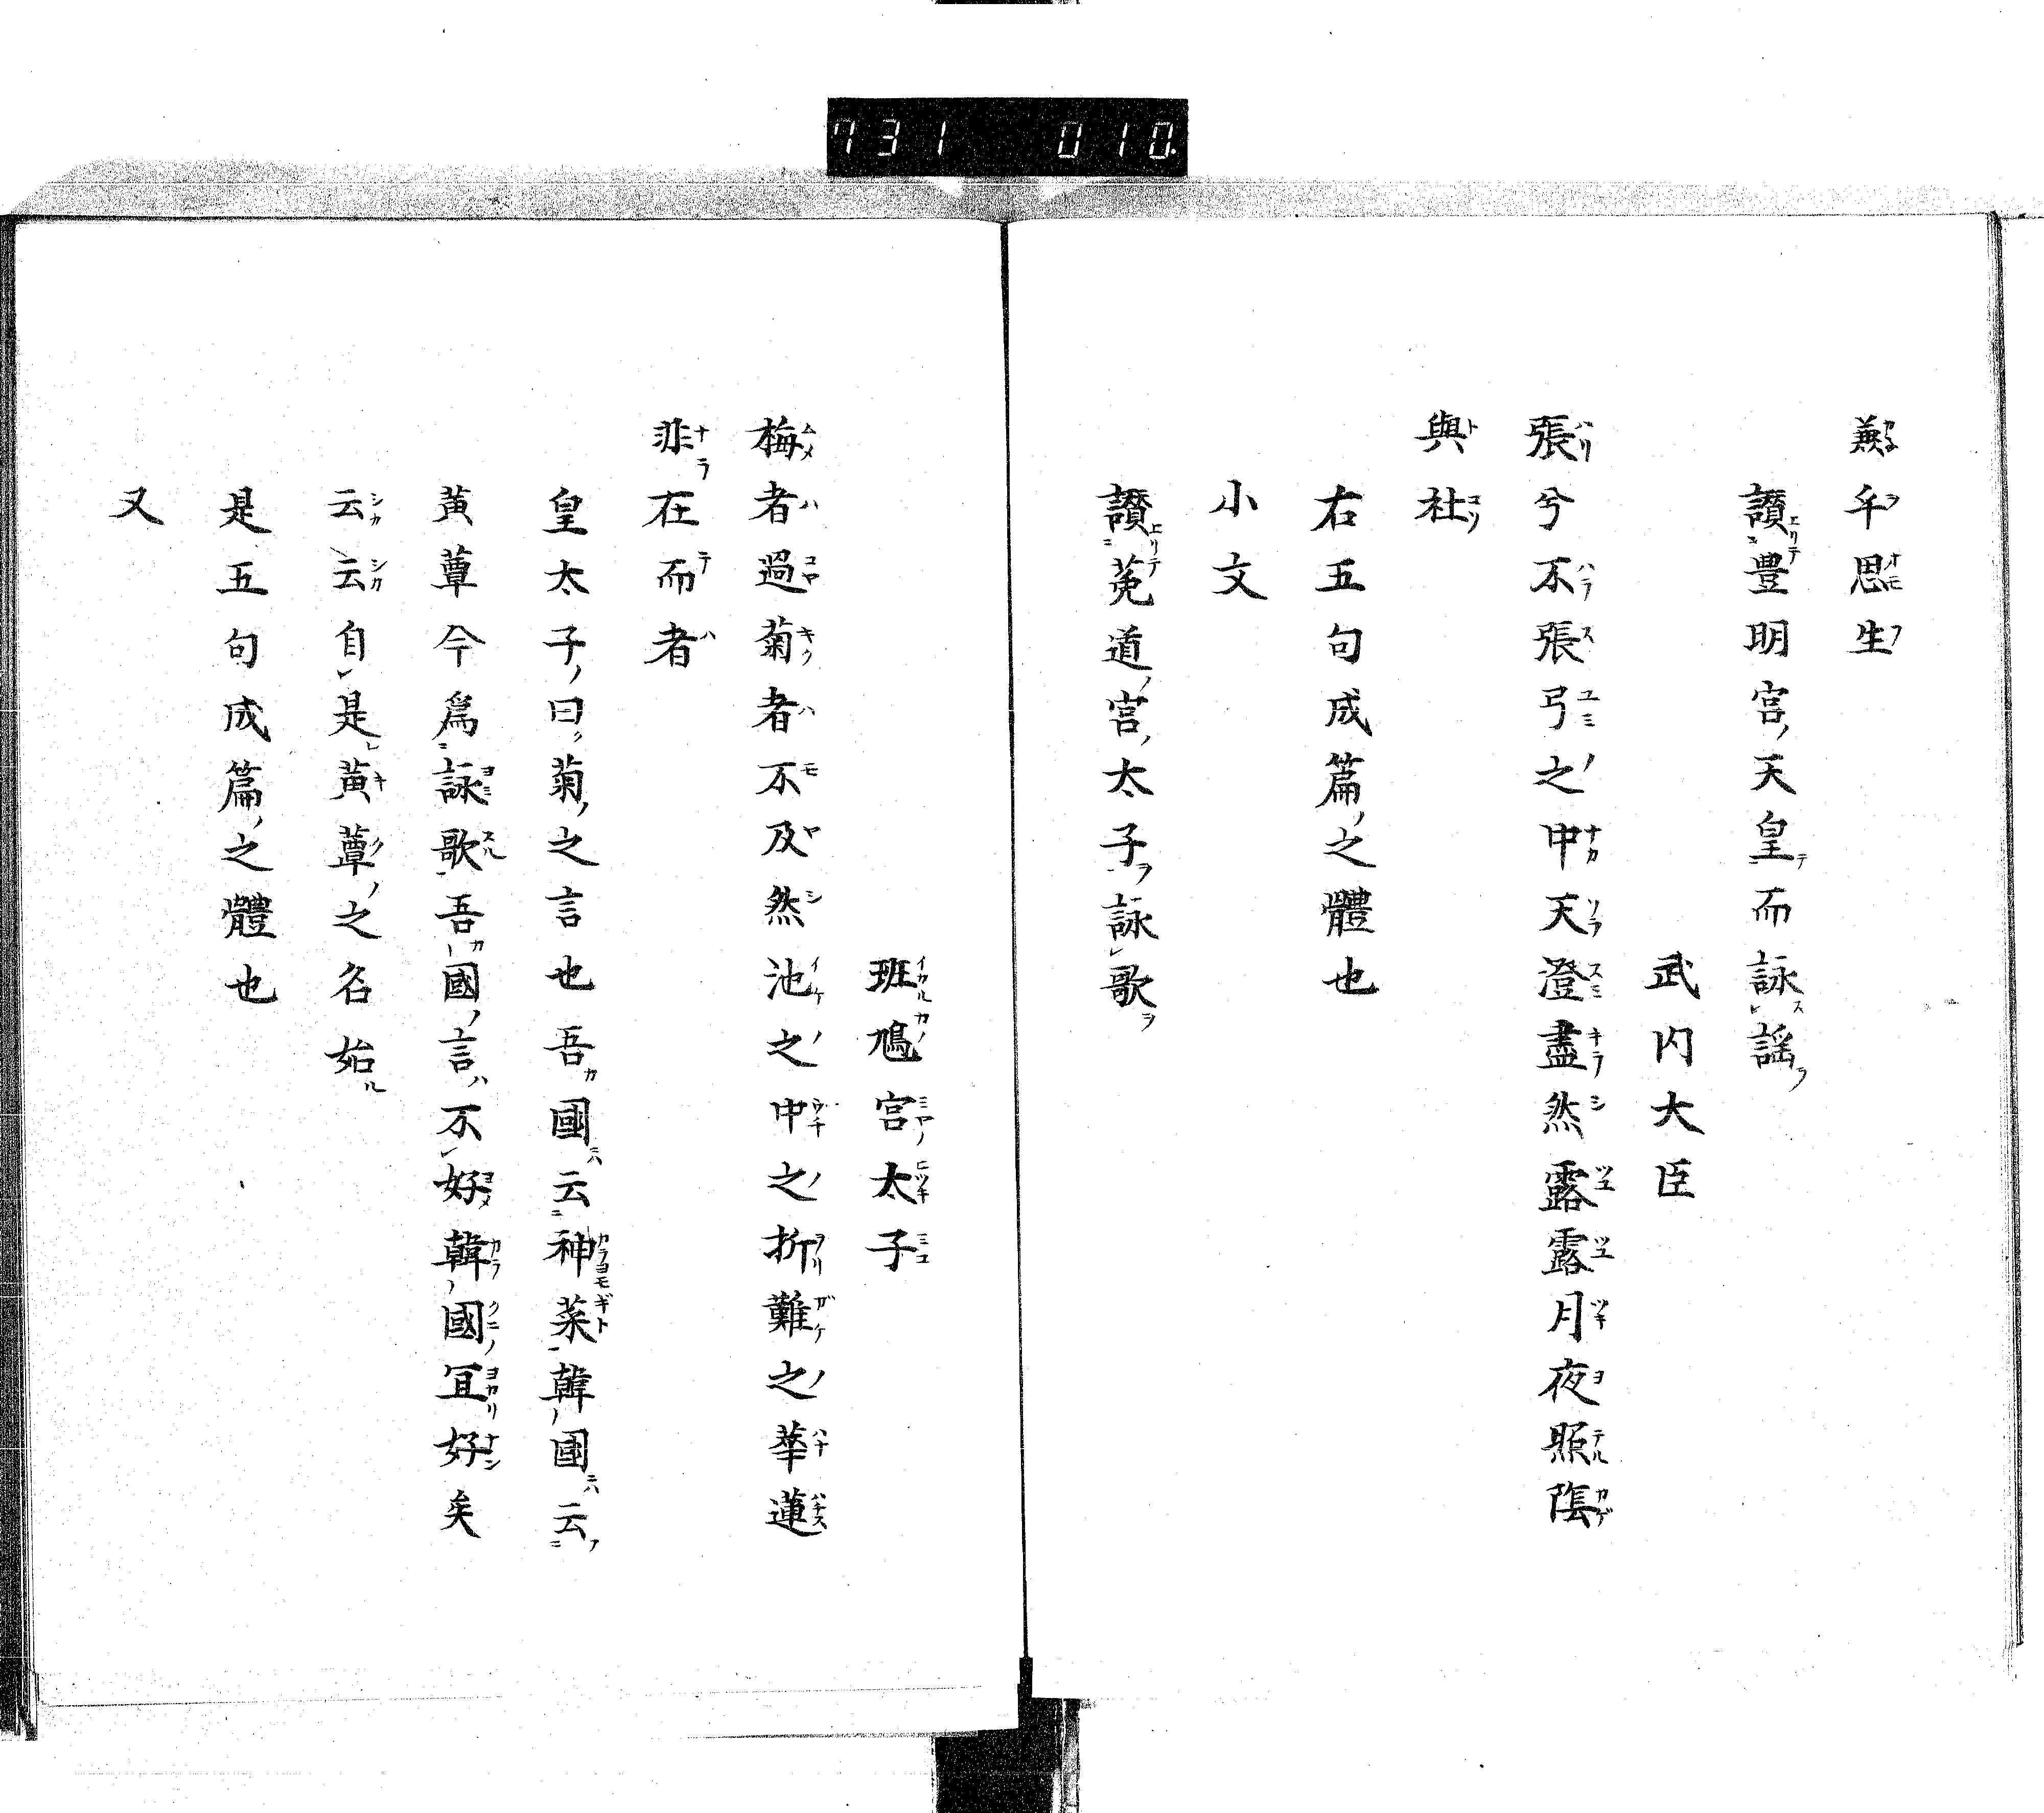 731 010.
蕪乎思生
讃豊明宮天皇而詠謡
武内大臣
張兮不張弓之中天澄盡然露露月夜照陰
與社
右五句成篇之體也
小文
讃菟道宮太子詠歌
班鳩宮太子
梅者過菊者不及然池之中之折難之華蓮
非在而者
皇太子曰菊之言也吾國云神菜韓國云
黄蕈今爲詠歌吾國言不好韓國宜好矣
云云自是黄蕈之名始
是五句成篇之體也
又